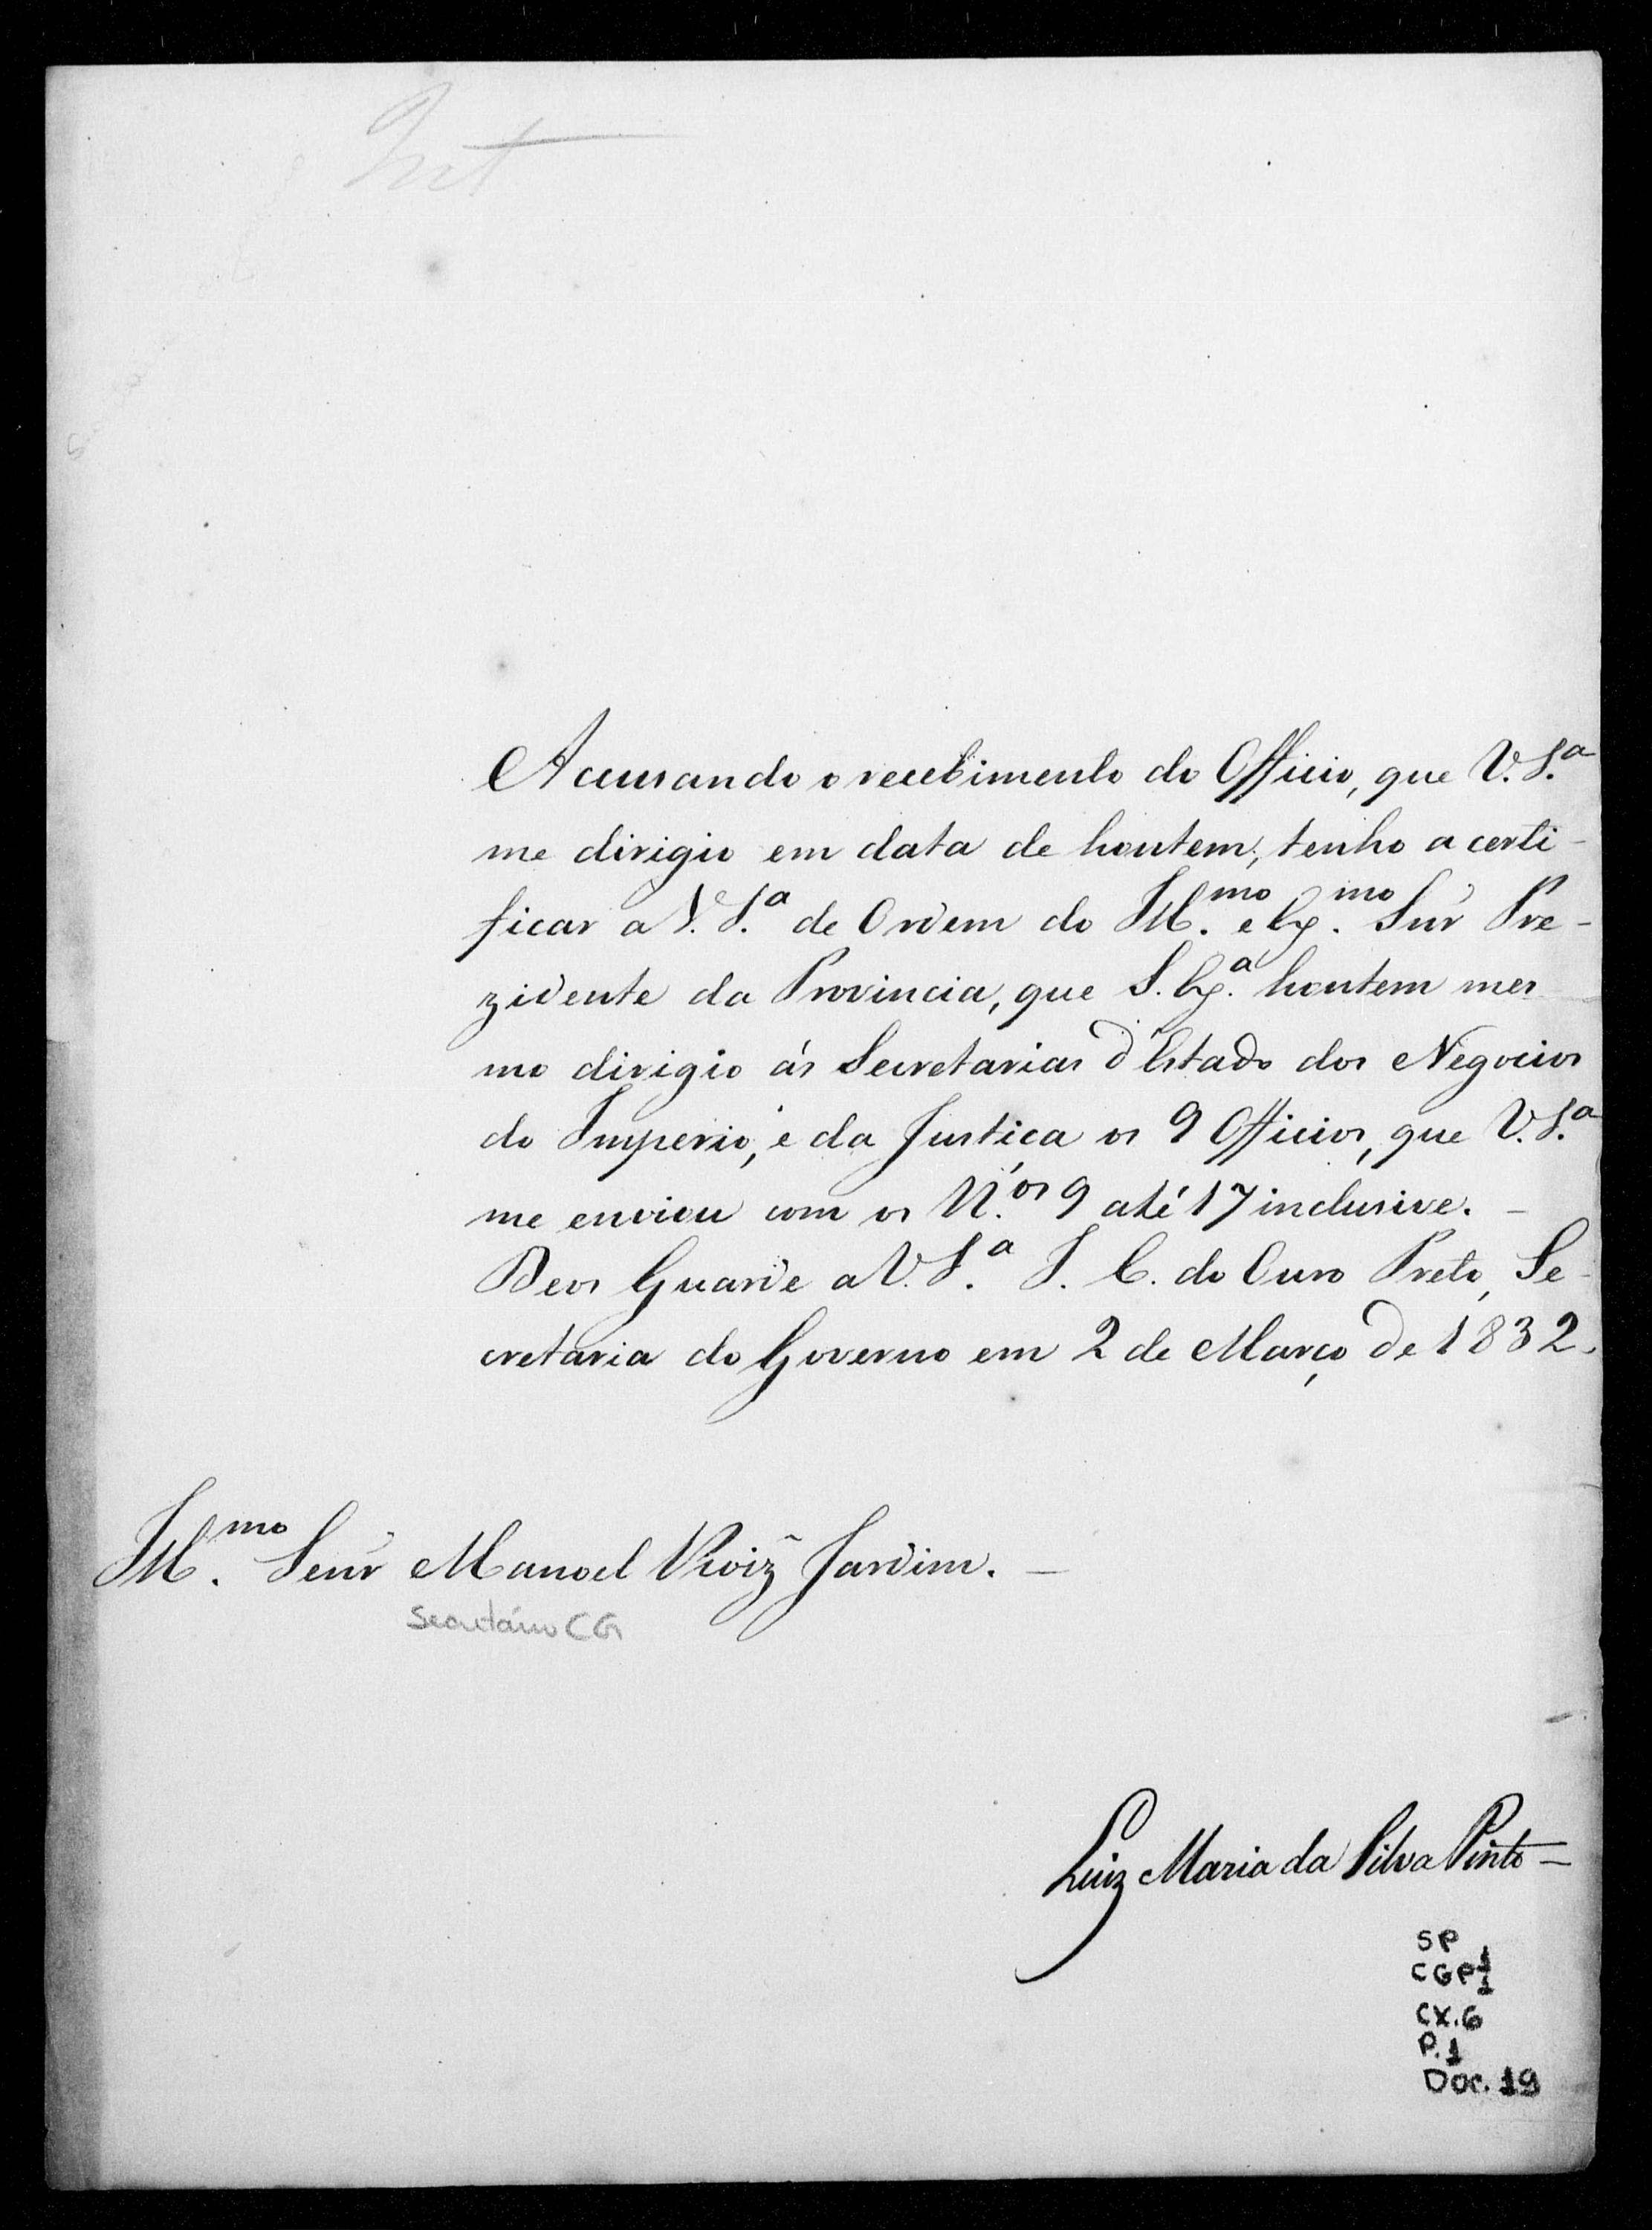 Int
Acusando o recebimento do Officio, que V. S.ª
me dirigio em data de hontem, tenho a certi-
ficar a V. S.ª de Ordem do Ill.mo e Ex.mo Snr̃ Pre-
zidente da Provincia, que S. Ex.ª hontem mes
mo dirigio ás Secretarias d'Estado dos Negocios
do Imperio, e da Justiça os 9 Officios, que V. S.ª
me enviou com os N.os 9 até 17 inclusive. -
Deos Guarde a V. S.ª I. C. do Ouro Preto, Se-
cretaria do Governo em 2 de Março de 1832.
Ill.mo Senr̃ Manoel Roiz̃ Jardim. -
Secretário CG
Luiz Maria da Silva Pinto -
SP
CGP1 1
CX. 6
P. 1
Doc. 19